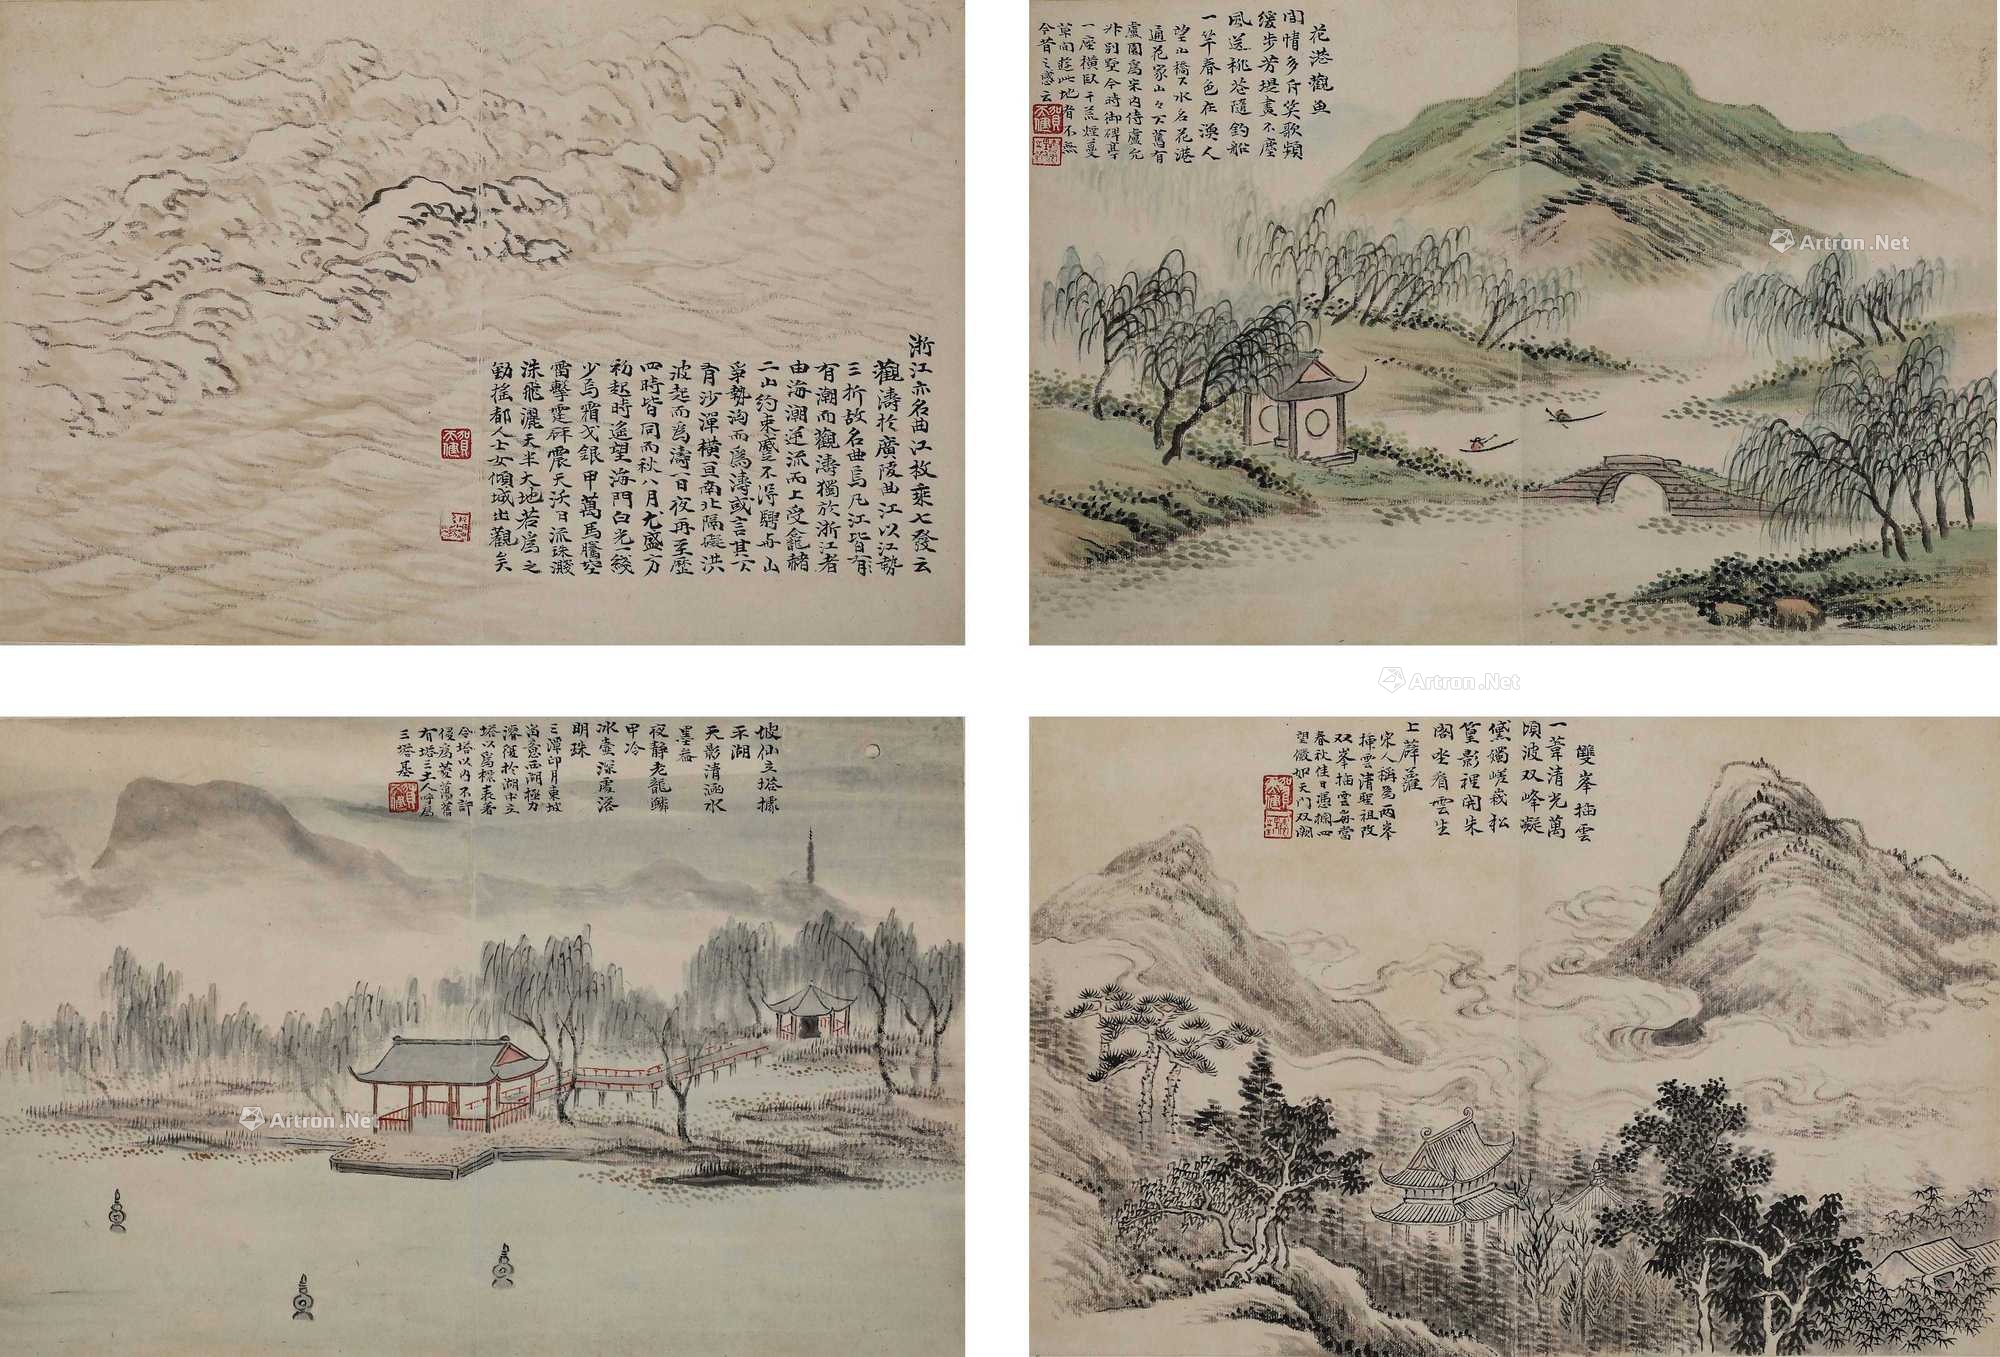 浙江亦名曲江枚乘七發云
觀濤於廣陵曲江以江勢
三折故名曲焉凡江皆有
有潮而觀濤獨於浙江者
由海潮逆流而上受龕赭
二山約束蹙不得騁與山
爭勢洶而為濤或言其下
有沙潬橫亘南北隔礙洪
波起而為濤一日夜再至歷
四時皆同而秋八月尤盛方
初起時遙望海門白光一綫
少焉霜戈銀甲萬馬騰空
雷擊霆砰震天沃日派珠濺
沫飛灑天半大地若為之
動搖都人士女傾城出觀矣
賀天健
花港觀魚
閒情多斥笑歌頻
緩步芳堤畫不塵
風送桃花隨釣船
一竿春色在漁人
望山橋下水名花港
通花家山々下舊有
盧園為宋內侍盧允
升別墅今時御碑亭
一座橫臥于荒煙蔓
草間遊此地者不無
今昔之感云
賀天健
坡仙立塔據
平湖
天影清涵水
墨蕪
夜靜老龍鱗
甲冷
冰壺深處浴
明珠
三潭印月東坡
當意西湖極力
濬復於湖中立
塔以為標表著
令塔以內不許
侵為菱蕩舊
有塔三土人呼為
三塔基
賀天健
雙峯插雲
一葦清光萬
頃波双峰凝
黛獨嵯峩松
篁影裡開朱
閣坐看雲生
上薜蘿
宋人稱為兩峯
插雲清聖祖改
双峯插雲每當
春秋佳日憑欄四
望儼如天門双闕
賀天健
Artron.Net
Artron.Net
Artron.Net